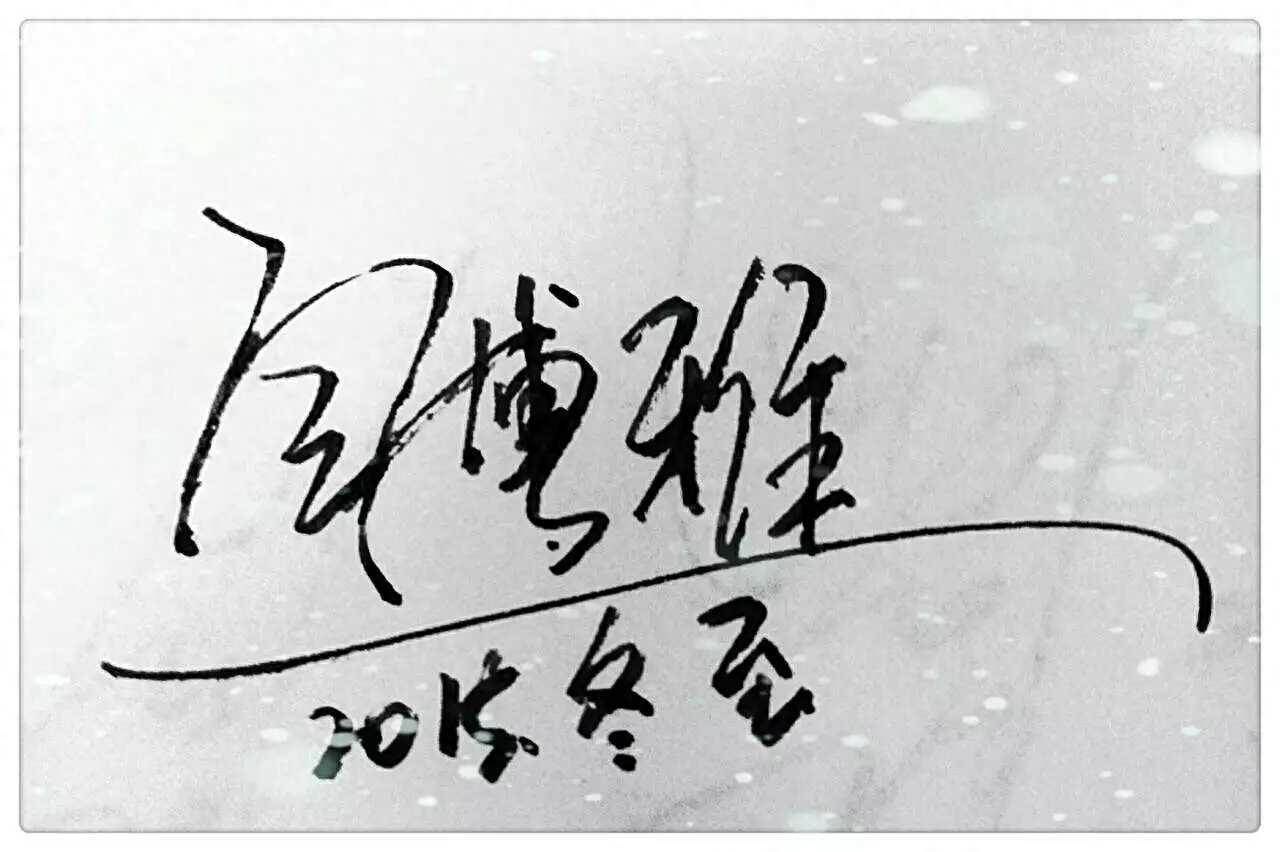 周博雅
2015冬至